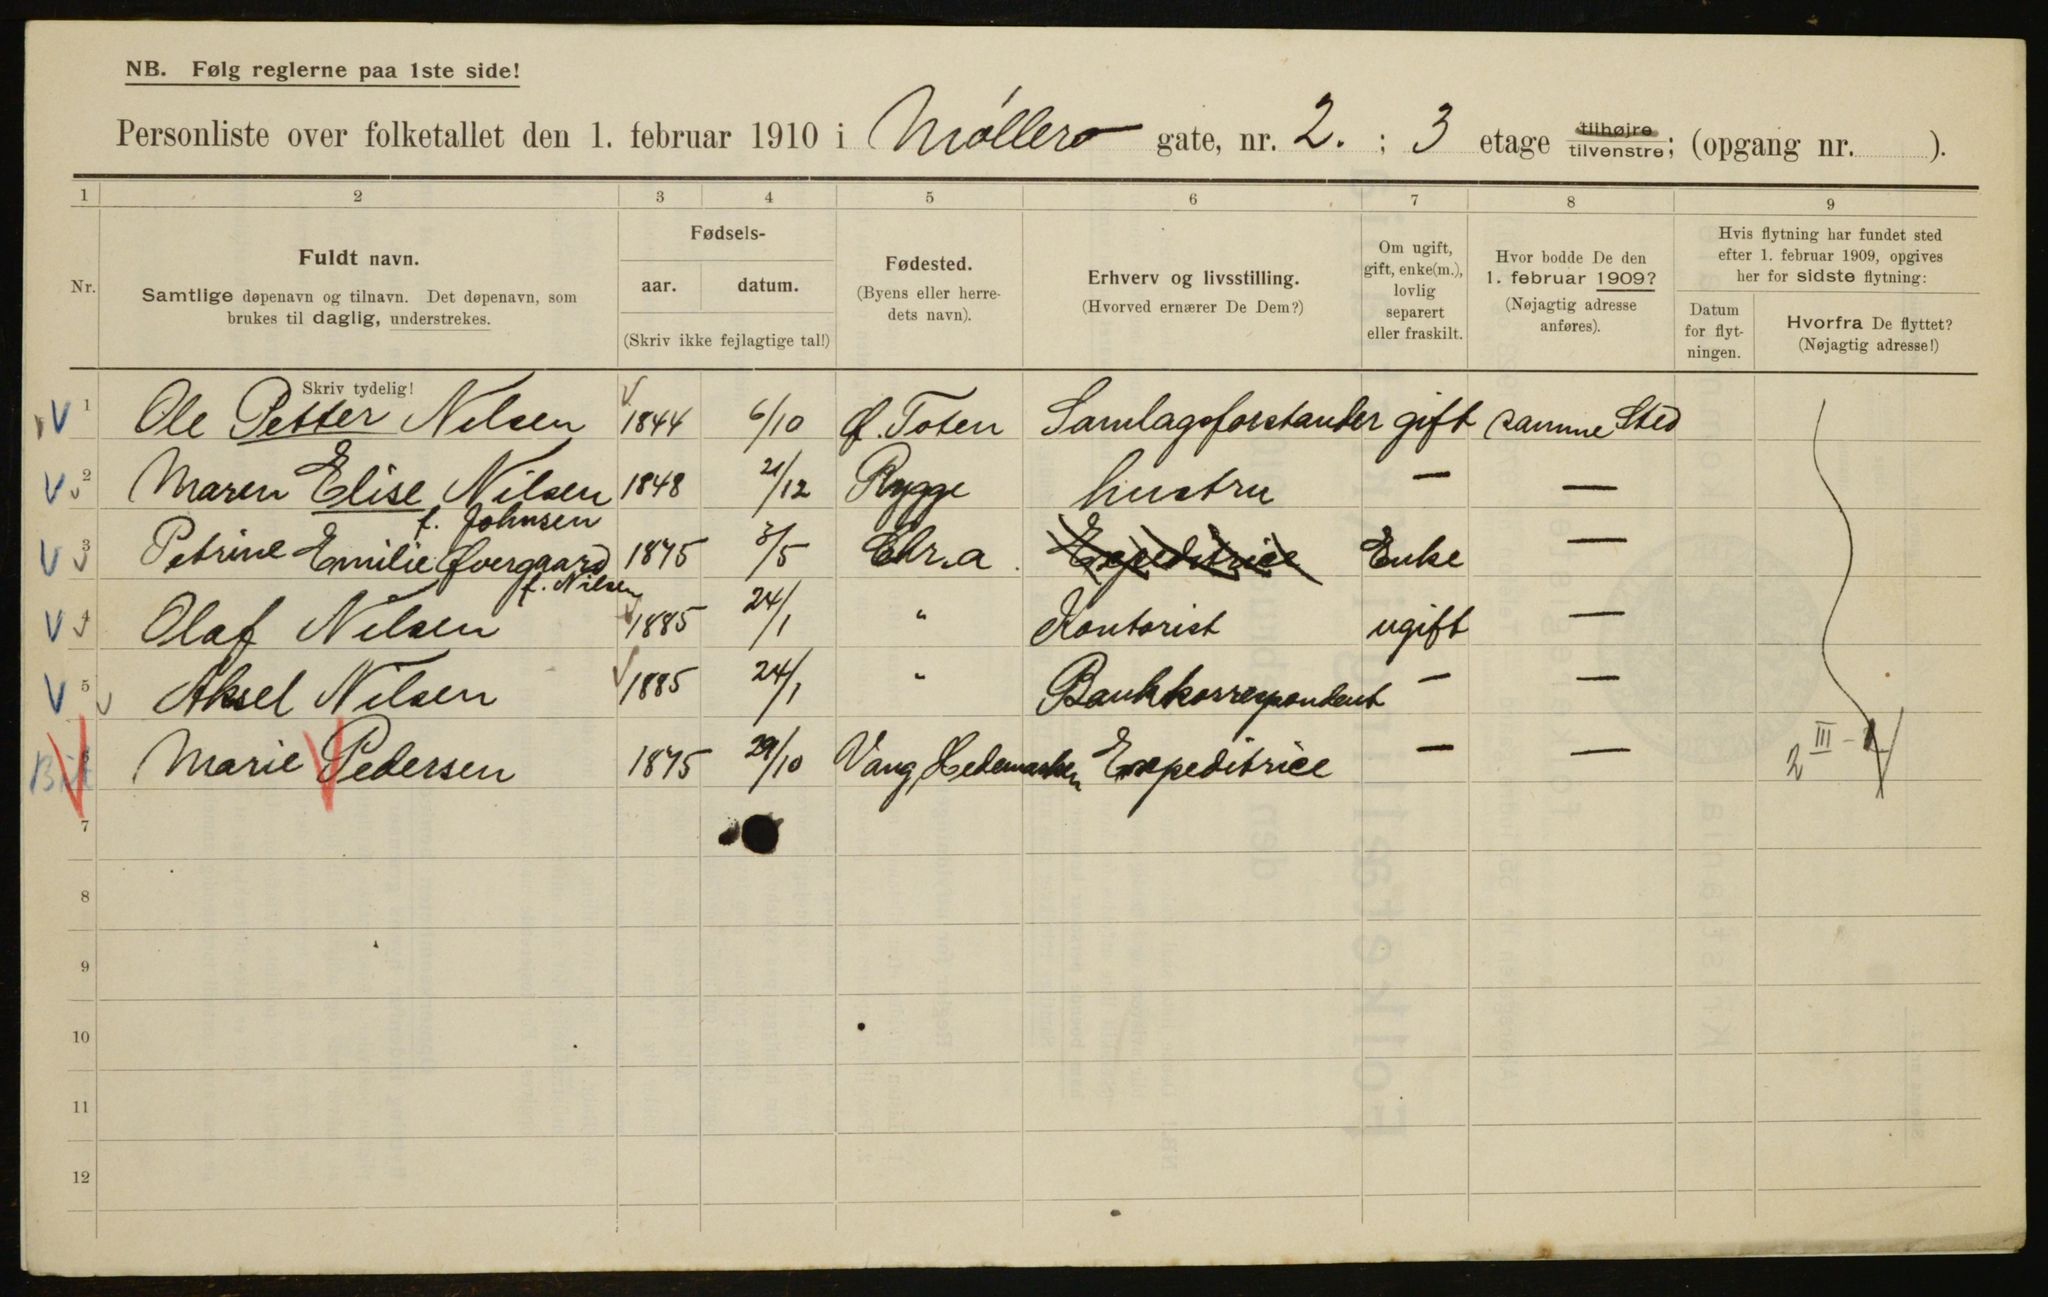 NB. Følg reglerne paa 1ste side!
Personliste over folketallet den 1. februar 1910 i Møllers gate, nr. 2. ; 3 etage tilhøjre tilvenstre; (opgang nr. ).
1 2 3 4 5 6 7 8 9
Nr.
Fuldt navn.
Samtlige døpenavn og tilnavn. Det døpenavn, som
brukes til daglig, understrekes.
Fødsels-
aar. datum.
(Skriv ikke fejlagtige tal!)
Fødested.
(Byens eller herre-
dets navn).
Erhverv og livsstilling.
(Hvorved ernærer De Dem?)
Om ugift,
gift, enke(m.),
lovlig
separert
eller fraskilt.
Hvor bodde De den
1. februar 1909?
(Nøjagtig adresse
anføres).
Hvis flytning har fundet sted
efter 1. februar 1909, opgives
her for sidste flytning:
Datum
for flyt-
ningen.
Hvorfra De flyttet?
(Nøjagtig adresse!)
Skriv tydelig!
1 Ole Petter Nilsen 1844 6/10 Ø. Toten Samlagsforstander gift samme Sted
2 Maren Elise Nilsen 1848 21/12 Rygge hustru — —
f. Johnsen
3 Petrine Emilie Øvergaard 1875 3/5 Chr.a Expeditrice Enke —
f. Nilsen
4 Olaf Nilsen 1885 24/1 " Kontorist ugift —
5 Aksel Nilsen 1885 24/1 " Bankkorrespondent — —
6 Marie Pedersen 1875 29/10 Vang, Hedemarken Expeditrice — —
7
8
9
10
11
12